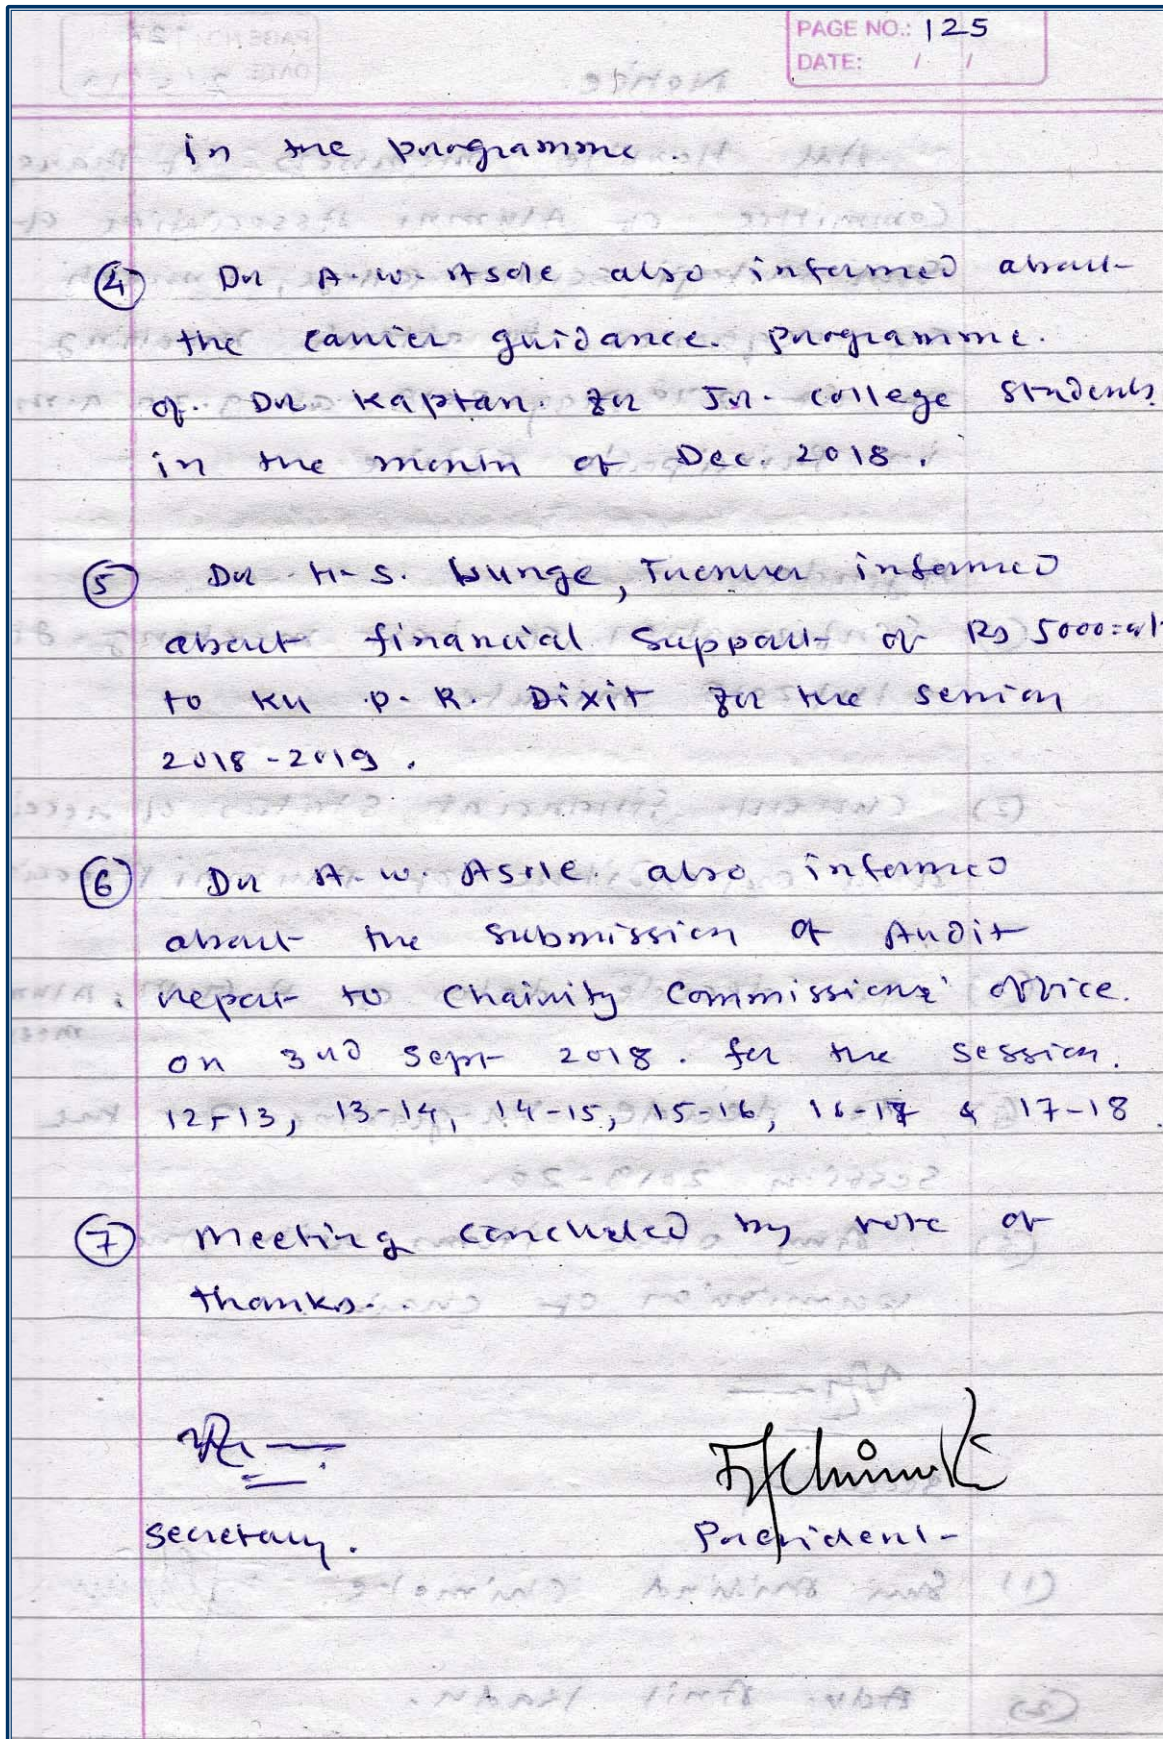 PAGE NO.: 125
DATE: / /
in the programme.
④ Dr A.W. Asole also informed about
the carrier guidance. programme.
of. Dr Kaptan. for Jr. college students.
in the month of Dec. 2018.
⑤ Dr H.S. Wunge, informed
about financial Support of Rs 5000=
to Ku P.R. Dixit for the session
2018-2019.
⑥ Dr A.W. Asole. also informed
about the submission of Audit
report to Chairity Commissions' office.
on 3rd Sept 2018. for the session.
12-13, 13-14, 14-15, 15-16, 16-17 & 17-18.
⑦ Meeting concluded by vote of
thanks.
Secretary.
President